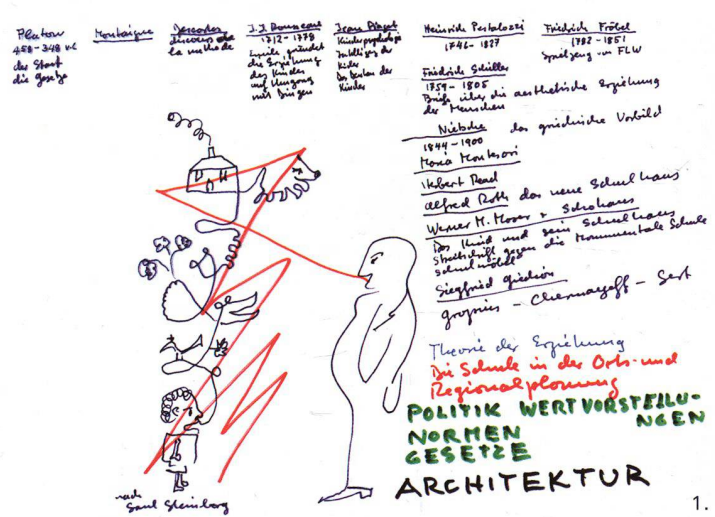 Platon
458-348 v.C
der Staat
die Gesetze
Montaigne
Descartes
discours de
la methode
J.J. Rousseau
1712-1778
Emile gründet
die Erziehung
des Kindes
auf Umgang
mit Dingen
Jean Piaget
Kinderpsychologe
Intelligenz der
Kinder
Das Denken der
Kinder
Heinrich Pestalozzi
1746-1827
Friedrich Fröbel
1782-1851
Spielzeug von FLW
Friedrich Schiller
1759-1805
Briefe über die aesthetische Erziehung
der Menschen
Nietsche das griechische Vorbild
1844-1900
Maria Montesori
Herbert Read
Alfred Roth das neue Schulhaus
Werner M. Moser + Schohaus
Das Kind und sein Schulhaus
Streitschrift gegen die Monumentale Schule
Schulmöbel
Siegfried Giedion
gropius - Chermayeff - Sert
Theorie der Erziehung
Die Schule in der Orts- und
Regionalplanung
POLITIK WERTVORSTELLU-
NGEN
NORMEN
GESETZE
ARCHITEKTUR
nach
Saul Steinberg
1.